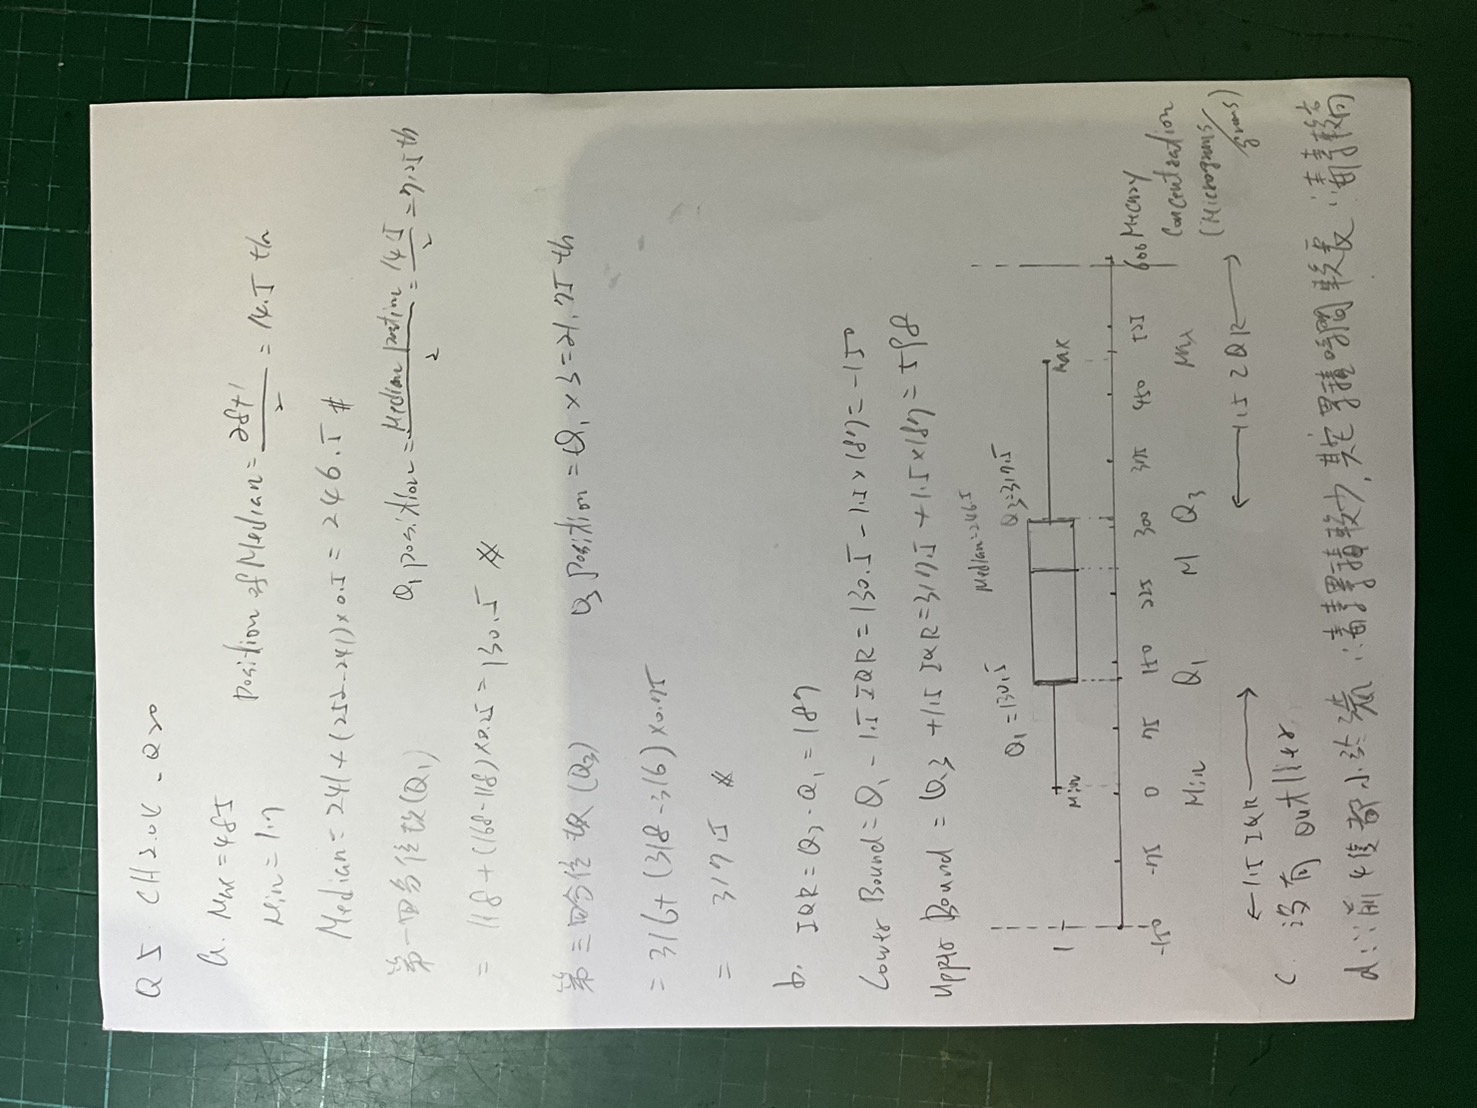 Q5 CH2.0V - Q20
a. Max = 485
Min = 1.7
position of Median = 28+1/2 = 14.5 th
Median = 241 + (252-241)×0.5 = 246.5 #
第一四分位數(Q1)
Q1 position = Median position/2 = 14.5/2 = 7.25 th
= 118 + (168-118)×0.25 = 130.5 #
第三四分位數(Q3)
Q3 position = Q1 × 3 = 21.75 th
= 316 + (318-316)×0.75
= 317.5 #
b. IQR = Q3 - Q1 = 187
Lower Bound = Q1 - 1.5 IQR = 130.5 - 1.5×187 = -150
Upper Bound = Q3 + 1.5 IQR = 317.5 + 1.5×187 = 598
Median=246.5
Q1 = 130.5
Q3=317.5
Min
Max
-150 -75 0 75 150 225 300 375 450 525 600 Mercury
Concentration
(Micrograms/grams)
Min Q1 M Q3 Max
← 1.5 IQR →
← 1.5 IQR →
c. 沒有 outlier
d. ∵前4隻都小於1歲 ∴毒累積較少, 其它累積時間較長 ∴毒較高